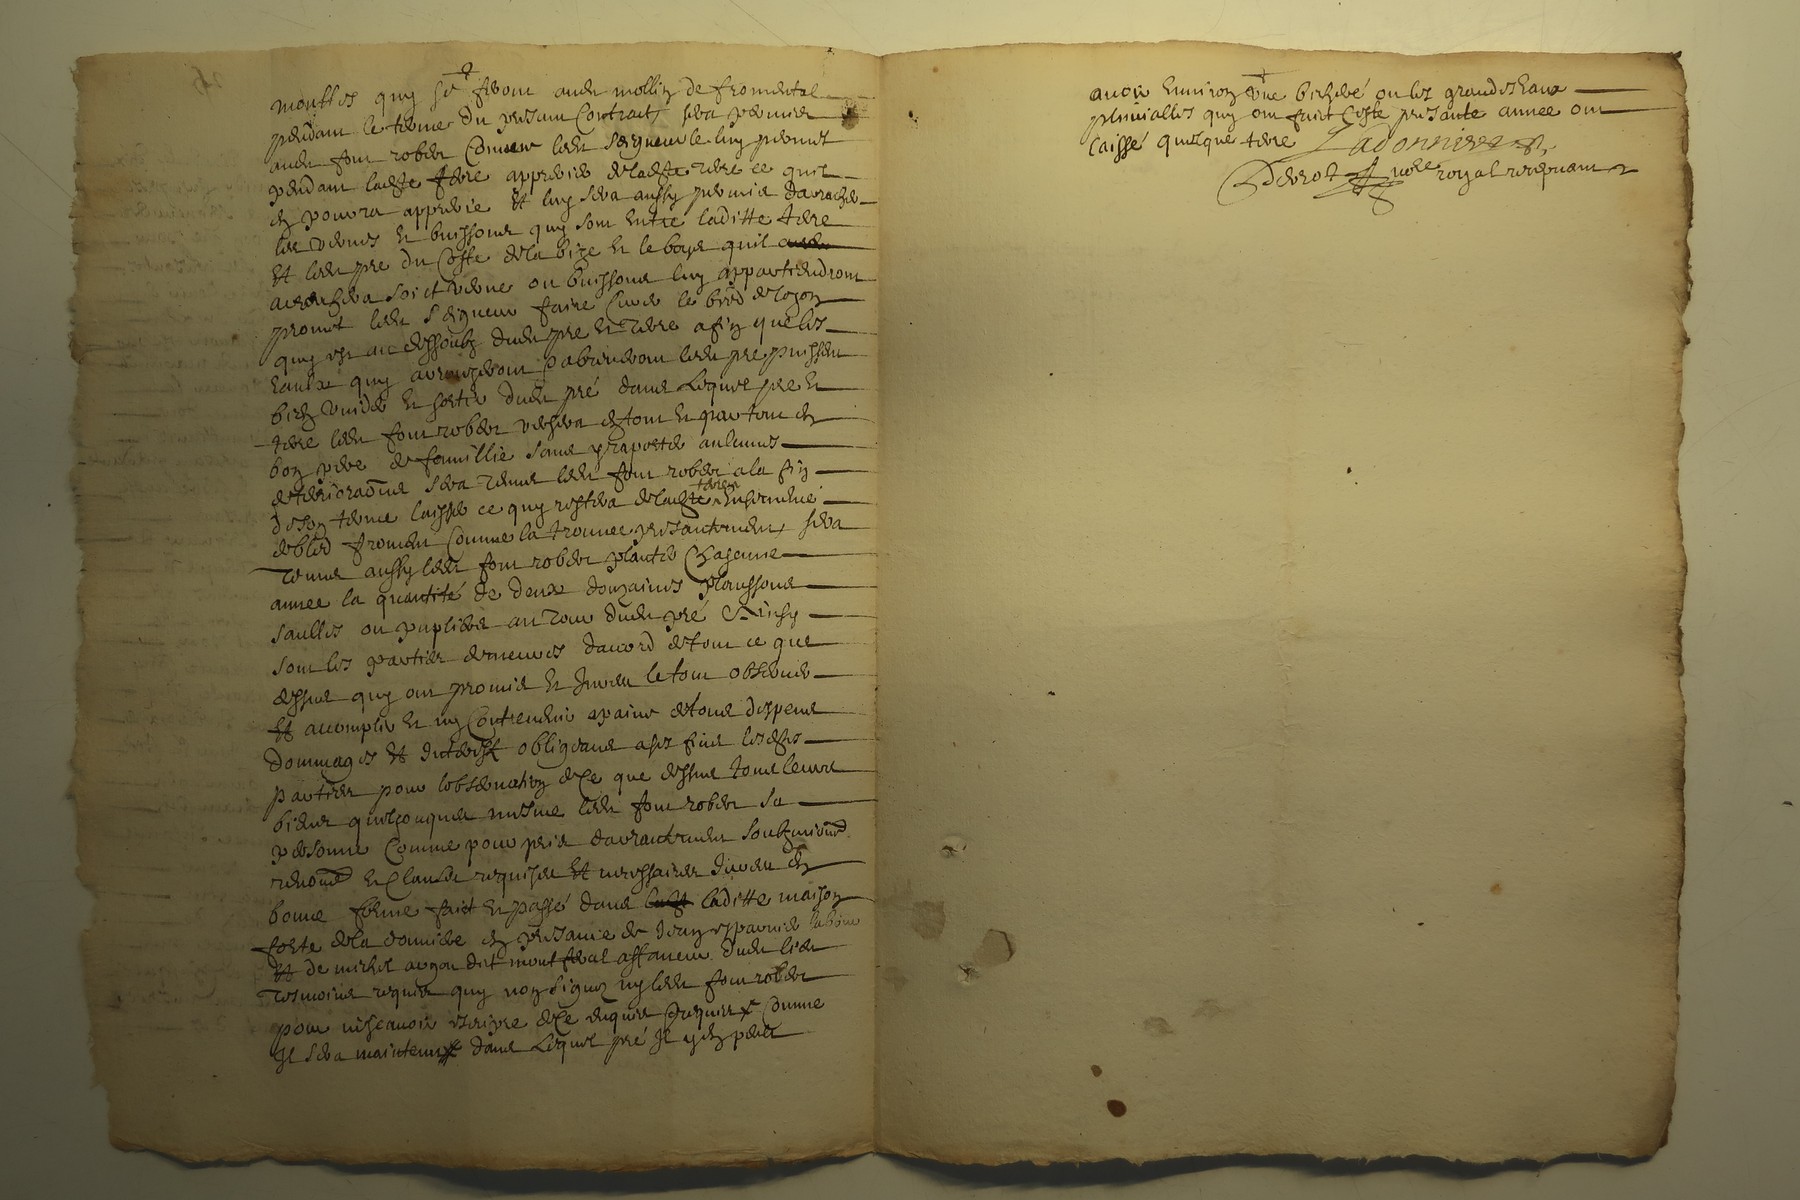 mouttes quy se feront audit mollin de fromental
pendant le terme du present Contract sera permier
audit four rober Comme ledit seigneur le luy permet
pendant ladite ferme apprevier de ladite terre ce quil
en pourra apprevie et luy sera aussy permis darracher
les vernes et buissons quy sont entre laditte terre
et ledit pre du Coste de la bize et le boys quil
arrachera soict verne ou buissons luy appartiendront
promet ledit seigneur faire Curer le bied de lozon
quy est au dessoubz dudit pre et terre afin que les
eaulx quy arrouzeront Et abreuveront ledit pre puissent
bien vuider et sortir dudit pré dans lequel pre et
terre ledit four rober versera en tout et par tout en
bon pere de famillie sans y raporter aulcunes
deteriorations sera tenu ledit four rober a la fin
de son terme laisser ce quy restera de ladite terre Ensemencé
de bled froment Comme la trouvee presantement sera
tenu aussy ledit four rober planter Chasque
annee la quantité de deux douzaines planssons
saulles ou pupliers au tour dudit pré Et Ainsy
sont les parties demeures daccord de tout ce que
dessus quy ont promis et Juren le tout observer
Et accomplir et ny Contrevenir a paine de tous despens
dommages et interest obligeans a ces fins lesdites
parties pour lobservation de Ce que dessus tous leurs
biens quelconques mesme ledit four rober sa
personne Comme pour prix darrantement soubzmissions
renons et Clauses requises et necessaires Juren En
bonne forme faict et passé dans laditte maison
forte de la donniere en presance de Jean
Et de michel dit affaneur dudit lieu
tesmoins requis quy nont signez ny ledit four rober
pour ne scavoir escripre de Ce enquis et requis Comme
Il sera maintenu dans lequel pré Il y en peult
avoir Environ une bicheré ou les grandes Eaux
pluvialles quy ont faict Ceste presante annee ont
laissé quelque terre Ladonniere
Perrot nore royal recepvant